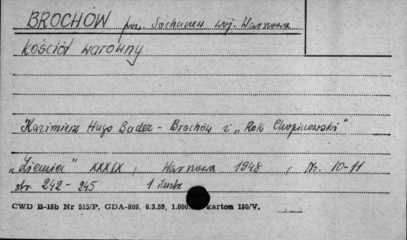 BROCHÓW pow. Sochaczew woj. Warszawa
Kościół warowny
Kazimierz Hugo Bader - Brochów i "Rok Chopinowski"
"Ziemia" XXXIX, Warszawa 1948, Nr. 10-11
str. 242-245 1 ilustr
CWD B-15b Nr 515/P. GDA-809. 6.3.59. 1.000 karton 180/V.